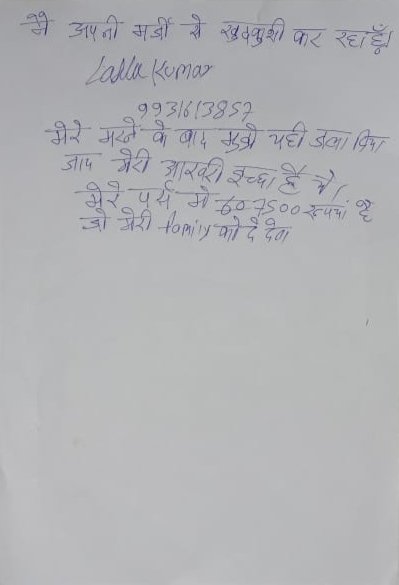 मै अपनी मर्जी से खुदकुशी कर रहा हूँ।
Lalla Kumar
9931613857
मेरे मरने के बाद मुझे यही जला दिया
जाय मेरी आखरी इच्छा है ये,
मेरे पर्स मे 607500 रूपया है
जो मेरी family को दे देना